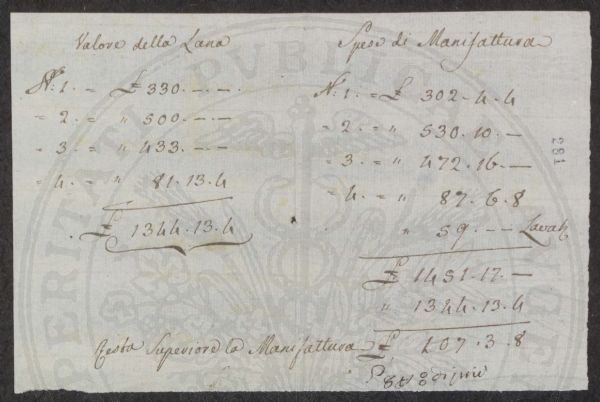 Valore della Lana
N: 1. = £ 330. — . —
= 2. = " 500. — . —
= 3. = " 433. — . —
= 4. = " 81. 13. 4
£ 1344. 13. 4
Spese di Manifattura
N: 1. = £ 302. 4. 4
= 2. = " 530. 10. —
= 3. = " 472. 16. —
= 4. = " 87. 6. 8
" 59. — —
£ 1451. 17. —
" 1344. 13. 4
Resta Superiore la Manifattura £ 107. 3. 8
281